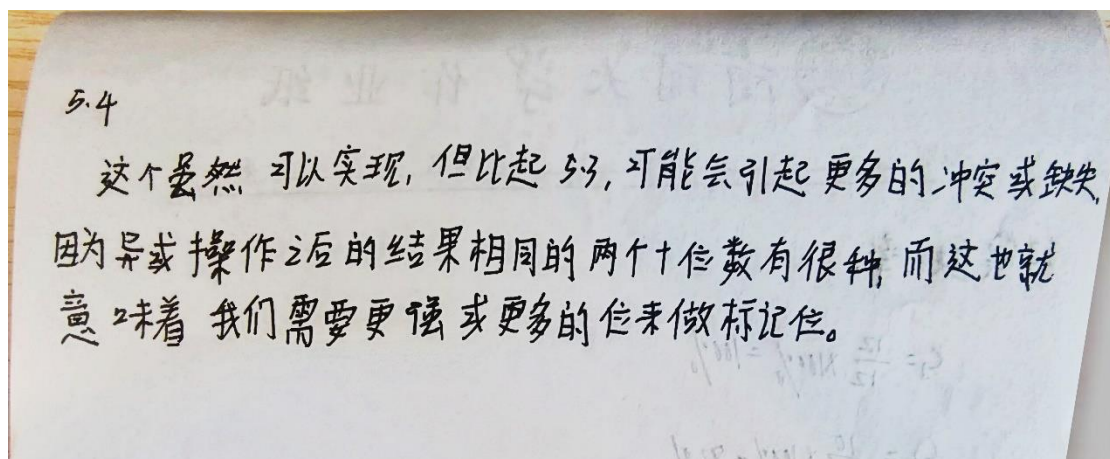 5.4
这个虽然 可以实现, 但比起 5.3, 可能会引起 更多的 冲突或缺失,
因为异或操作之后的结果相同的两个十位数有很种, 而这也就
意味着 我们需要更强或更多的位来做标记位。